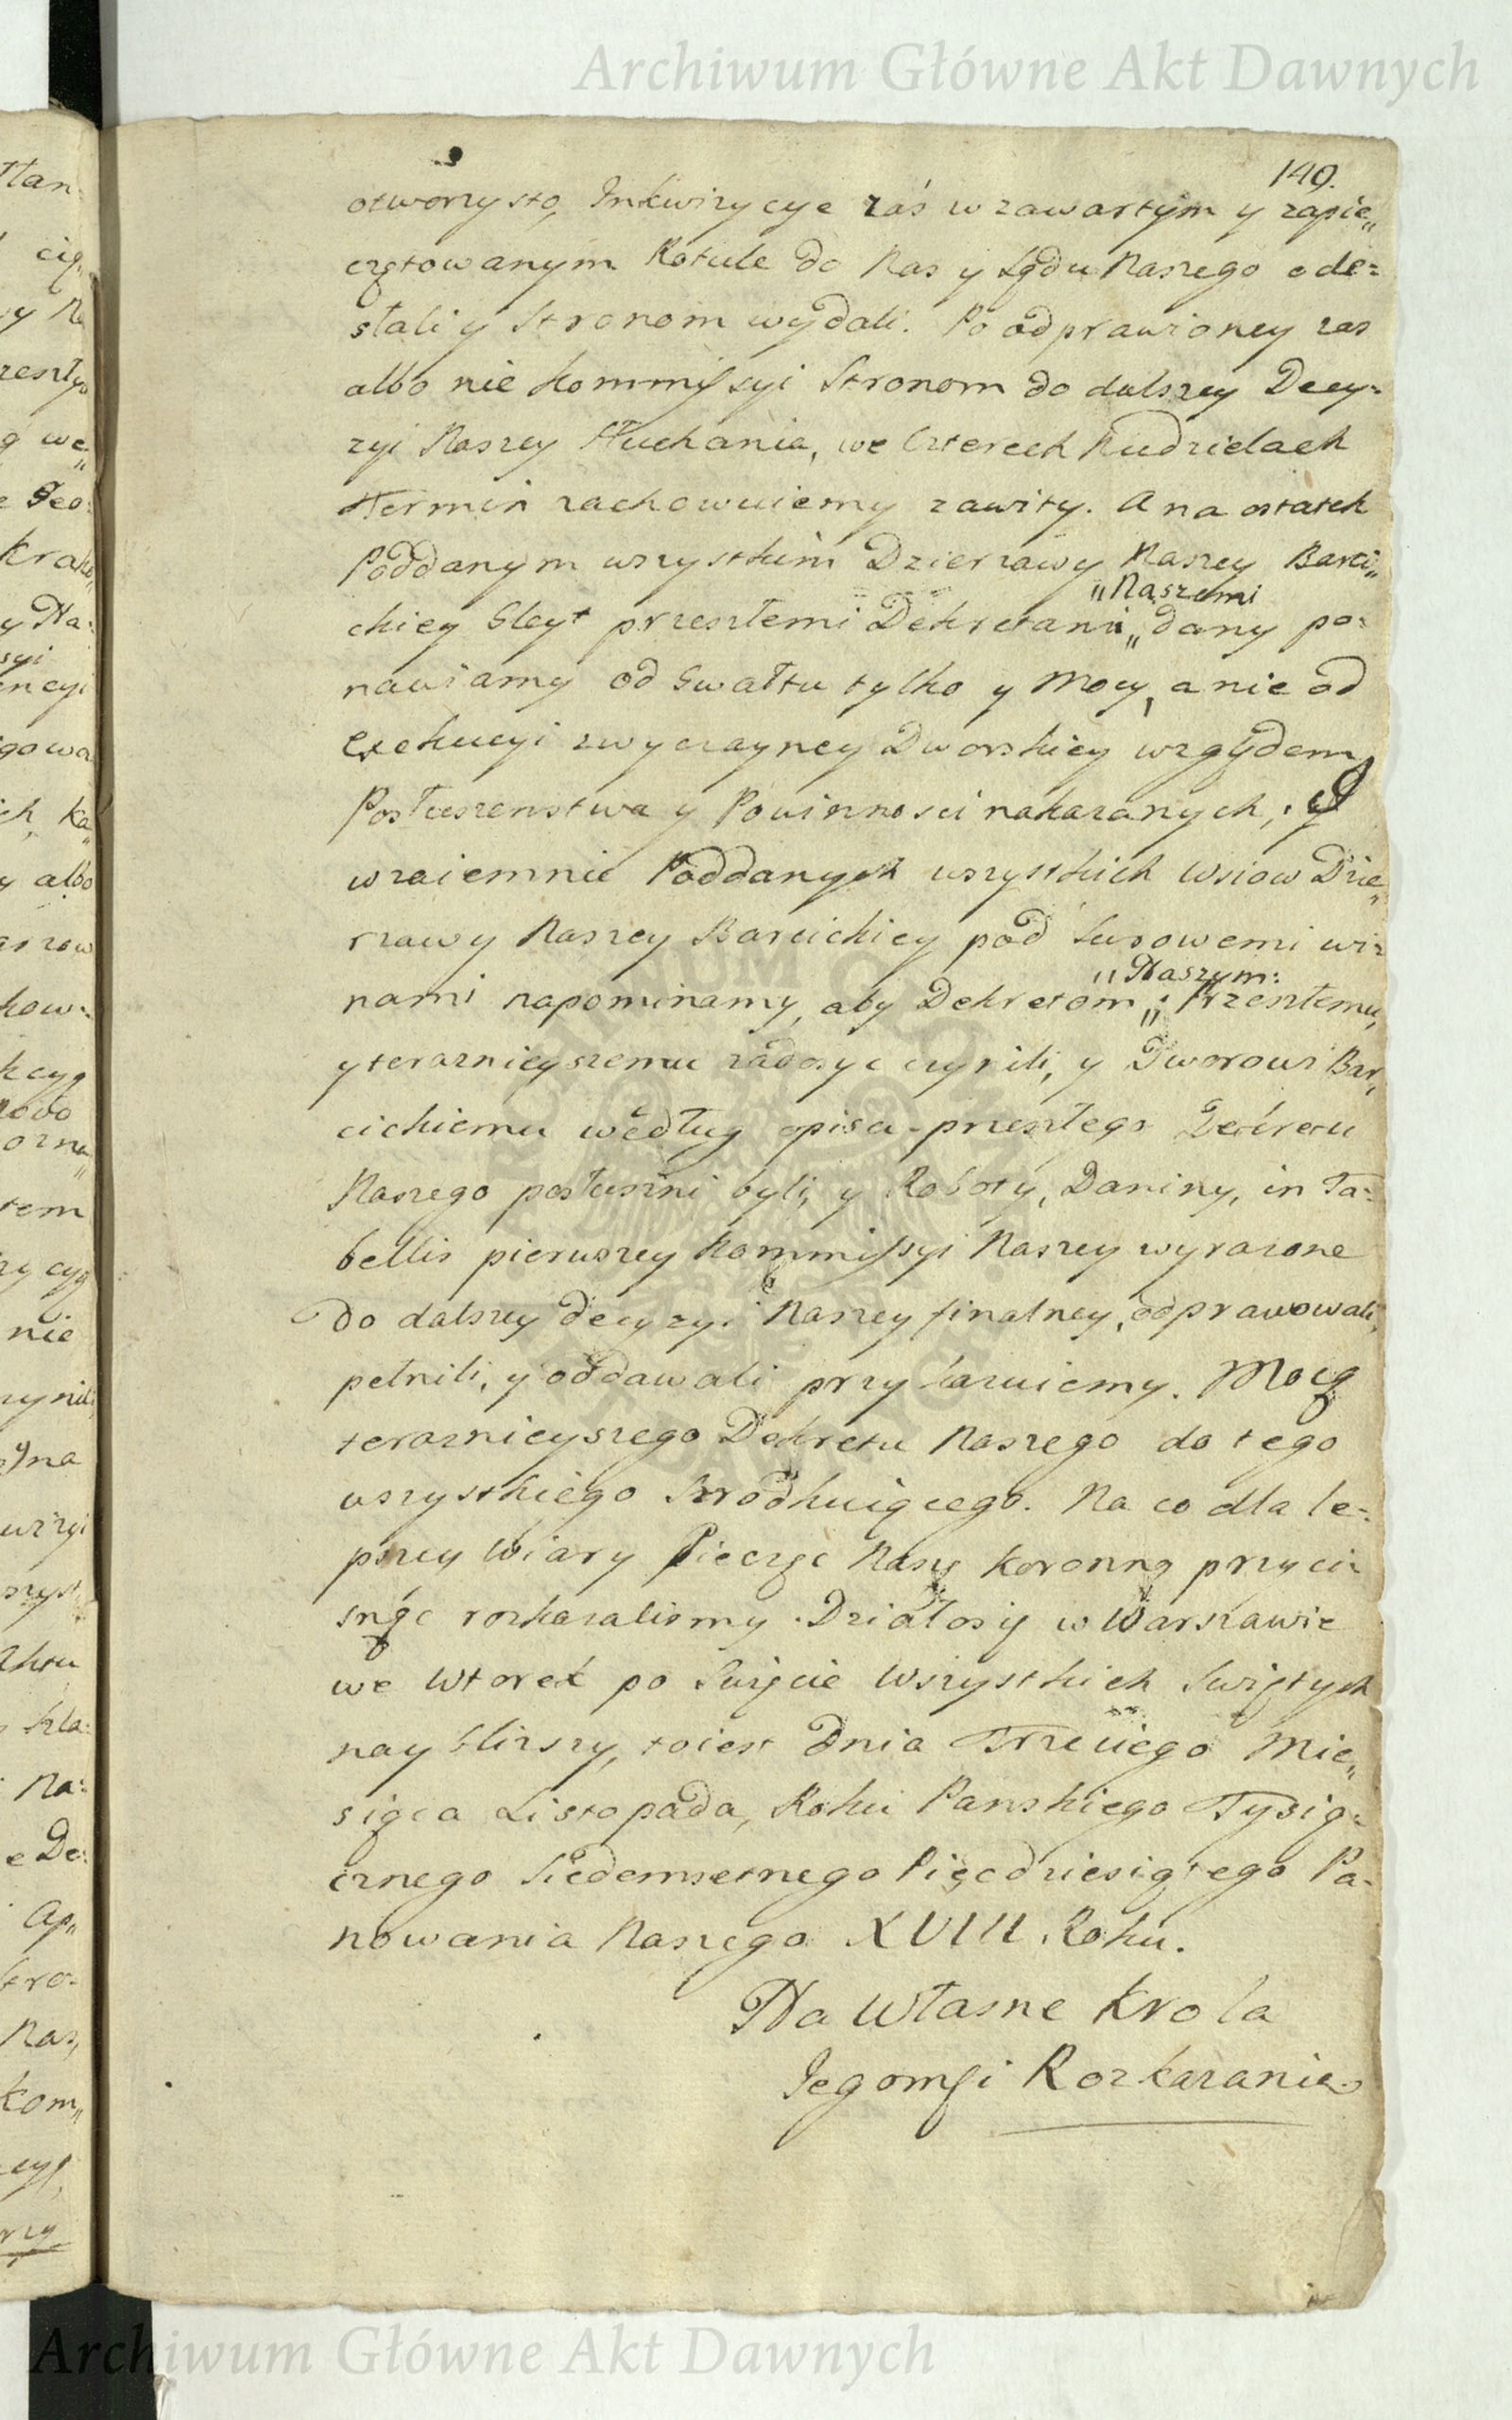 Archiwum Główne Akt Dawnych
149.
otworzysto, Inkwizycye zaś w zawartym y zapie„
czętowanym Rotule do Nas y Sądu Naszego ode=
słali y Stronom wydali. Po odprawioney zas
albo nie Kommissyi Stronom do dalszey Decy=
zyi Naszey Słuchania, we Czterech Niedzielach
Termin zachowuiemy zawity. A na ostatek
Poddanym wszystkim Dzierzawy Naszey Barci„
„Naszemi
ckiey Gleyt przeszłemi Dekretami „ dany po=
nawiamy od Gwałtu tylko y Mocy, a nie od
Exekucyi zwyczayney Dworskiey względem
Posłuszenstwa y Powinnosci nakazanych, y
wzaiemnie Poddanych wszystkich Wsiow Dzie„
rzawy Naszey Barcickiey pod surowemi wi=
„Naszym:
nami napominamy, aby Dekretom „ Przeszłemu,
y teraznieyszemu zadosyc czynili, y Dworowi Bar„
cickiemu według opisu przeszłego Dekretu
Naszego posłuszni byli, y Roboty, Daniny, in Ta=
bellis pierwszey Kommissyi Naszey wyrazone
do dalszey decyzyi Naszey finalney, odprawowali,
pełnili, y oddawali przykazuiemy. Mocą
teraznieyszego Dekretu Naszego do tego
wszystkiego Srzodkuiącego. Na co dla le=
pszey Wiary Pieczęc Naszą Koronną przyci=
snąc rozkazalismy. Działo się w Warszawie
we Wtorek po Swięcie Wszystkich Swiętych
nayblizszy, toiest dnia Trzeciego Mie„
siąca Listopada, Roku Panskiego Tysią=
cznego Siedemsetnego Pięcdziesiątego Pa=
nowania Naszego XVIII. Roku.
Na Własne Krola
Jegomsci Rozkazanie
Archiwum Główne Akt Dawnych